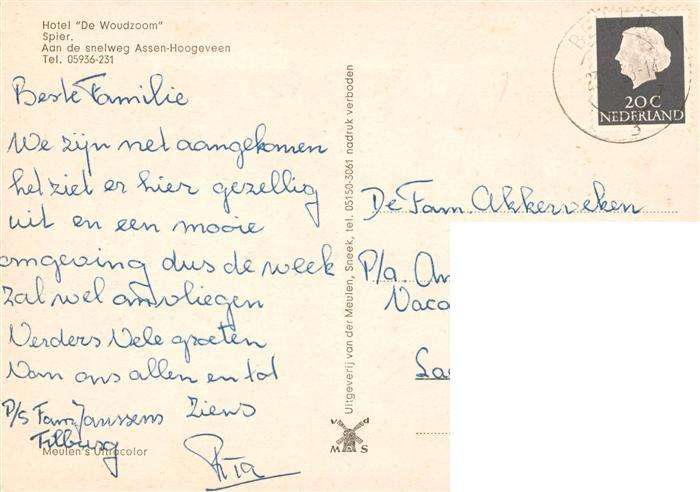 Hotel "De Woudzoom"
Spier.
Aan de snelweg Assen-Hoogeveen
Tel. 05936-231
Beste Familie
We zijn net aangekomen
het ziet er hier gezellig
uit en een mooie
omgeving dus de week
zal wel omvliegen
Verders Vele groeten
Van ons allen en tot
Ziens
P/s Fam. Janssens
Tilburg
Ria
Meulen's Ultracolor
Uitgeverij van der Meulen, Sneek, tel. 05150-3061 nadruk verboden
v d
M S
20 C
NEDERLAND
De Fam. Akkerveken
P/a.